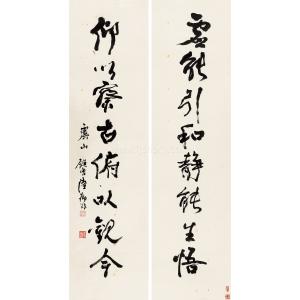 虚能引和静能生悟
仰以察古俯以观今
虞山